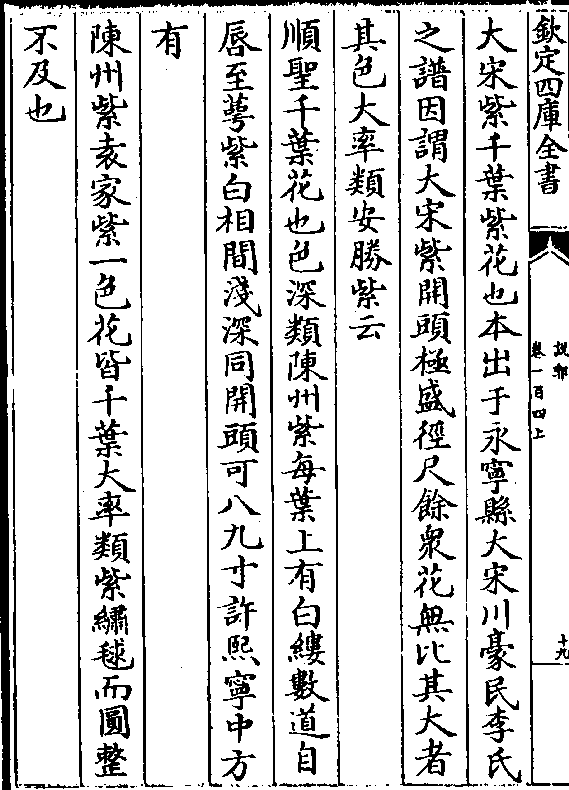 欽定四庫全書
說郛
卷一百四上
十九
大宋紫千葉紫花也本出于永寧縣大宋川豪民李氏
之譜因謂大宋紫開頭極盛徑尺餘衆花無比其大者
其色大率類安勝紫云
順聖千葉花也色深類陳州紫每葉上有白縷數道自
唇至萼紫白相間淺深同開頭可八九寸許熙寧中方
有
陳州紫袁家紫一色花皆千葉大率類紫繡毬而圓整
不及也